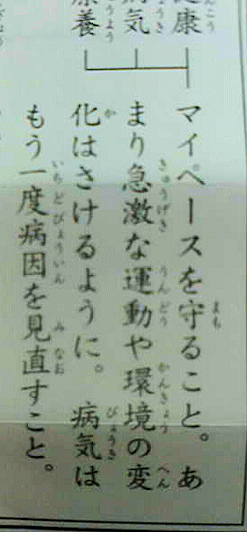 健康
病気
療養
マイペースを守ること。あ
まり急激な運動や環境の変
化はさけるように。病気は
もう一度病因を見直すこと。